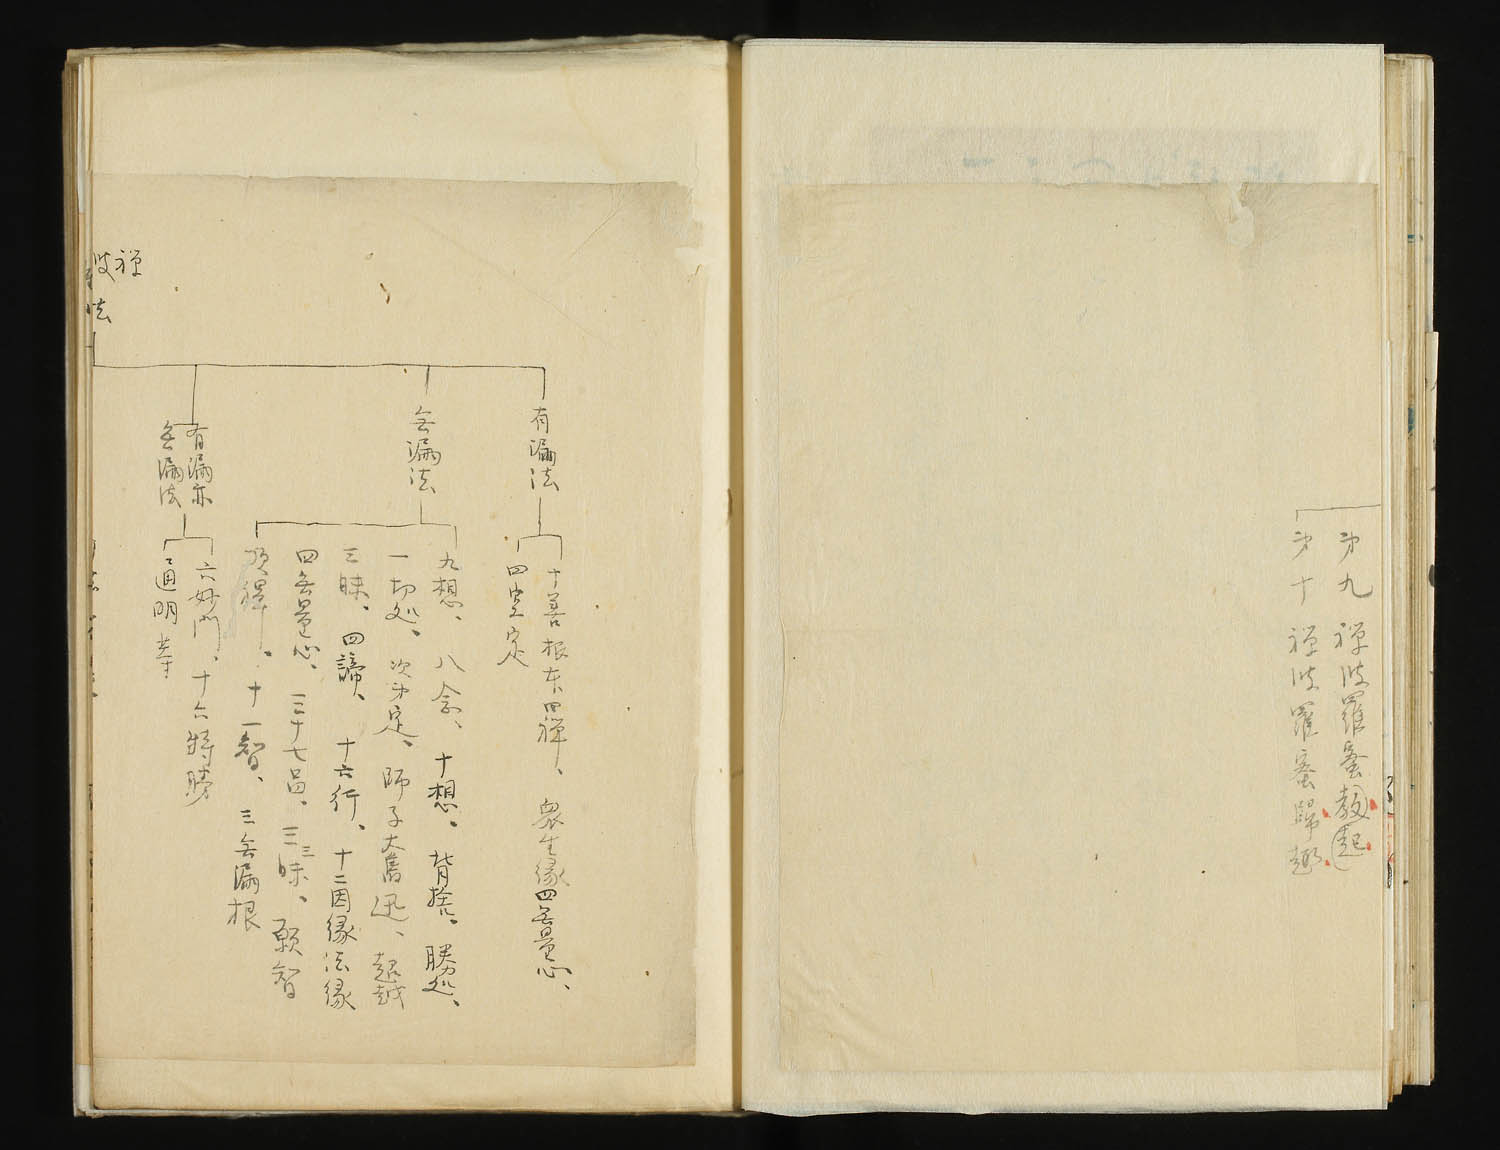 第九 禅波羅蜜教起
第十 禅波羅蜜歸趣
有漏法
十善根本四禅、衆生縁四無量心、
四空定
無漏法
九想、八念、十想、背捨、勝処、
一切処、次第定、師子奮迅、超越
三昧、四諦、十六行、十二因縁法縁
四無量心、三十七品、三三昧、願智
頂禅、十一智、三無漏根
有漏亦
無漏法
六妙門、十六特勝
通明等
禅
波
法